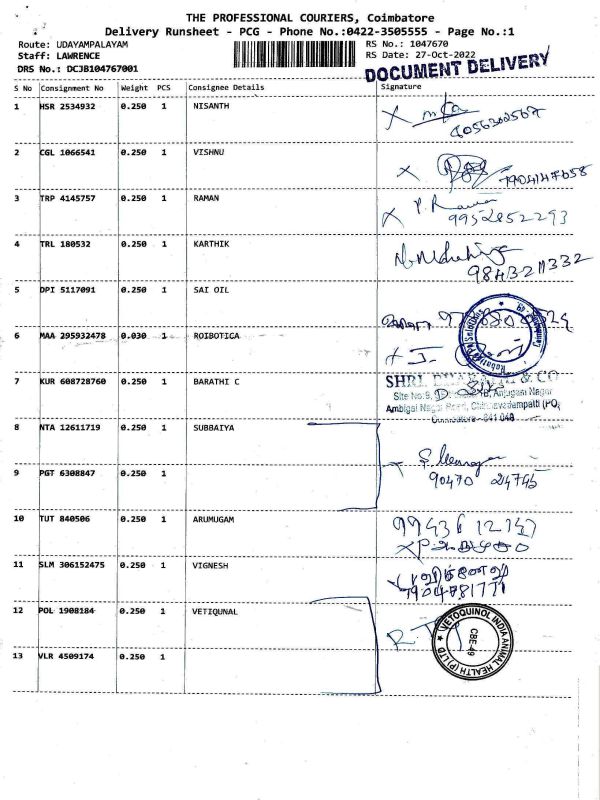 THE PROFESSIONAL COURIERS, Coimbatore
Delivery Runsheet - PCG - Phone No.:0422-3505555 - Page No.:1
Route: UDAYAMPALAYAM
RS No.: 1047670
Staff: LAWRENCE
RS Date: 27-Oct-2022
DRS No.: DCJB104767001
DOCUMENT DELIVERY
S No Consignment No Weight PCS Consignee Details Signature
1 HSR 2534932 0.250 1 NISANTH
8056302567
2 CGL 1066541 0.250 1 VISHNU
7904147658
3 TRP 4145757 0.250 1 RAMAN
P. Raman
9952852293
4 TRL 180532 0.250 1 KARTHIK
9843211332
5 DPI 5117091 0.250 1 SAI OIL
6 MAA 295932478 0.030 1 ROIBOTICA
7 KUR 608728760 0.250 1 BARATHI C
SHRI & CO
Site No:9, Anjugam Nagar
Ambigai Nagar Road, Chinnavedampatti (PO,
Coimbatore - 641 049
8 NTA 12611719 0.250 1 SUBBAIYA
9 PGT 6308847 0.250 1
90470 24745
10 TUT 840506 0.250 1 ARUMUGAM
11 SLM 306152475 0.250 1 VIGNESH
7904781771
12 POL 1908184 0.250 1 VETIQUNAL
VETOQUINOL INDIA ANIMAL HEALTH (P) LTD
CBE-49
13 VLR 4509174 0.250 1